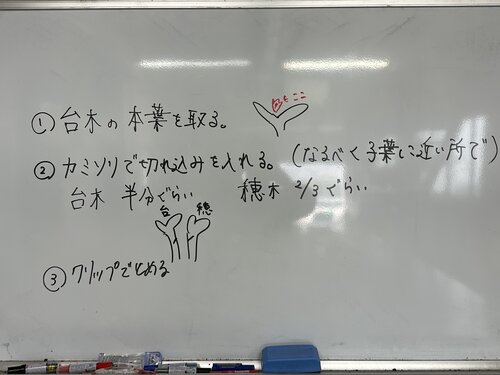 ① 台木の本葉を取る。
② カミソリで切れ込みを入れる。(なるべく子葉に近い所で)
台木 半分ぐらい 穂木 2/3ぐらい
台 穂
③ クリップでとめる